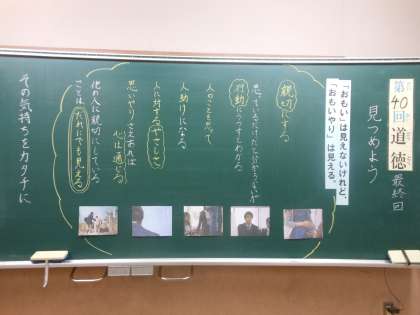 第40回 道徳 最終回
見つめよう
「おもい」は見えないけれど、
「おもいやり」は見える。
親切にする
思っているだけだと分からないが
行動にうつすとわかる
人のことを思って
人助けになる
人に対するやさしさ
思いやりさえあれば
心は通じる
他の人に親切にしている
ことはだれにでも見える
その気持ちをカタチに